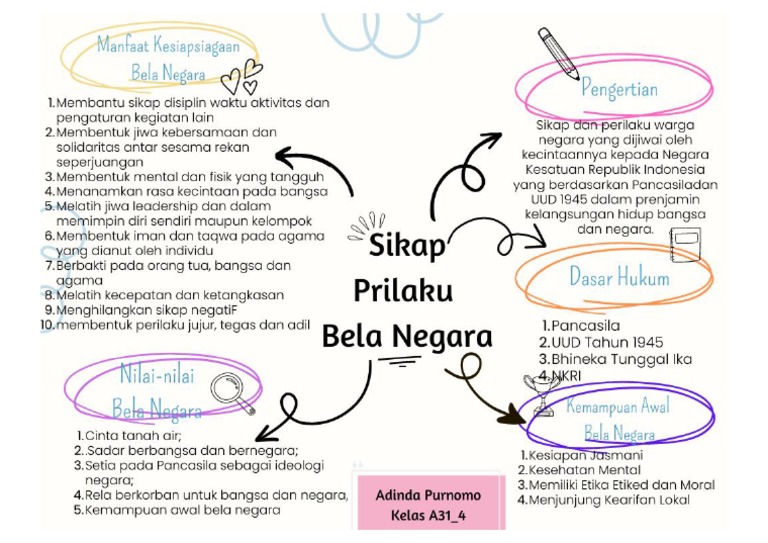 Manfaat Kesiapsiagaan
Bela Negara
1.Membantu sikap disiplin waktu aktivitas dan
pengaturan kegiatan lain
2.Membentuk jiwa kebersamaan dan
solidaritas antar sesama rekan
seperjuangan
3.Membentuk mental dan fisik yang tangguh
4.Menanamkan rasa kecintaan pada bangsa
5.Melatih jiwa leadership dan dalam
memimpin diri sendiri maupun kelompok
6.Membentuk iman dan taqwa pada agama
yang dianut oleh individu
7.Berbakti pada orang tua, bangsa dan
agama
8.Melatih kecepatan dan ketangkasan
9.Menghilangkan sikap negatiF
10.membentuk perilaku jujur, tegas dan adil
Nilai-nilai
Bela Negara
1.Cinta tanah air;
2..Sadar berbangsa dan bernegara;
3.Setia pada Pancasila sebagai ideologi
negara;
4.Rela berkorban untuk bangsa dan negara,
5.Kemampuan awal bela negara
Sikap
Prilaku
Bela Negara
Adinda Purnomo
Kelas A31_4
Pengertian
Sikap dan perilaku warga
negara yang dijiwai oleh
kecintaannya kepada Negara
Kesatuan Republik Indonesia
yang berdasarkan Pancasiladan
UUD 1945 dalam prenjamin
kelangsungan hidup bangsa
dan negara.
Dasar Hukum
1.Pancasila
2.UUD Tahun 1945
3.Bhineka Tunggal Ika
4.NKRI
Kemampuan Awal
Bela Negara
1.Kesiapan Jasmani
2.Kesehatan Mental
3.Memiliki Etika Etiked dan Moral
4.Menjunjung Kearifan Lokal